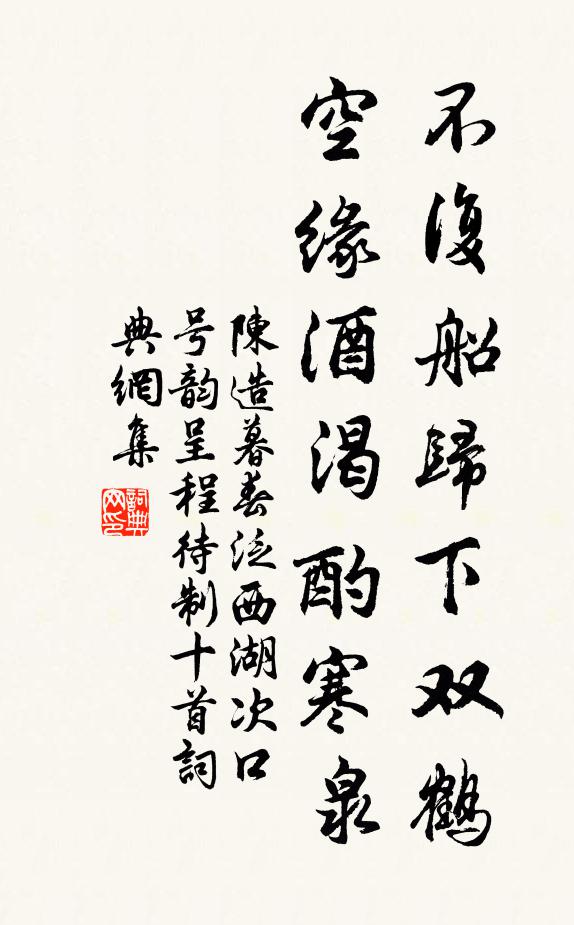 不復船歸下双鶴
空緣酒渴酌寒泉
陳造暮春泛西湖次口
号韵呈程待制十首詞
典網集
詞典网印